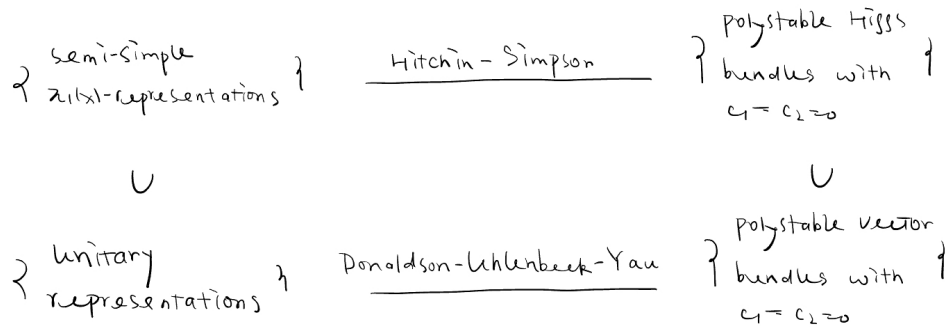 { semi-simple π₁(X)-representations }
Hitchin - Simpson
{ polystable Higgs bundles with c₁ = c₂ = 0 }
∪ ∪
{ unitary representations }
Donaldson-Uhlenbeck-Yau
{ polystable vector bundles with c₁ = c₂ = 0 }